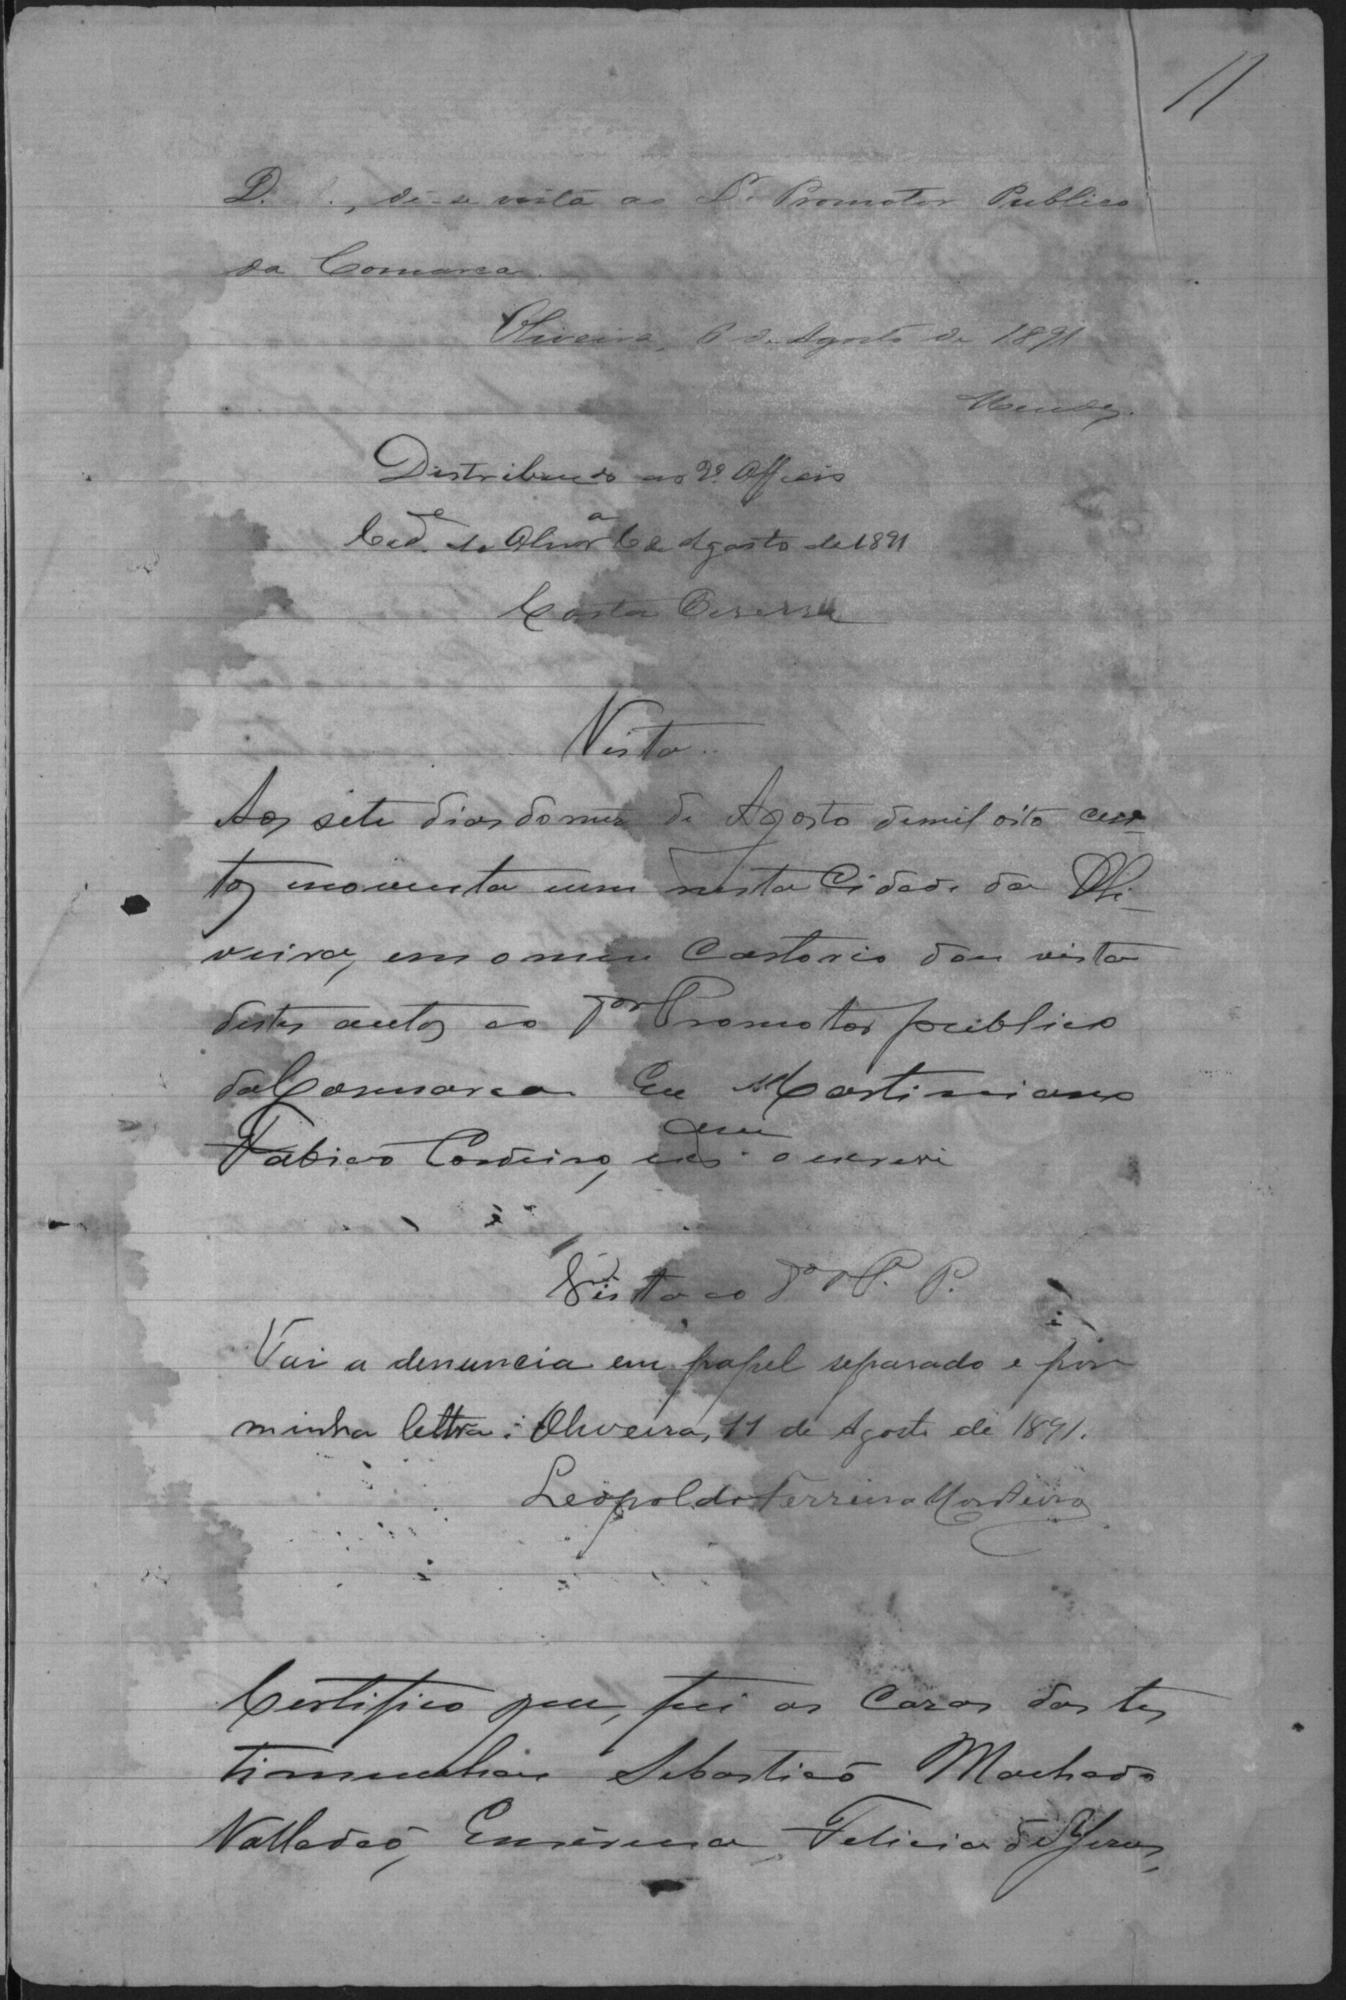 11
D. , dê-se vista ao Dr Promotor Publico
da Comarca.
Oliveira, 6 de Agosto de 1891
Mendes.
Distribuido ao 2º Officio
Cide. de Olivra 6 de Agosto de 1891
Costa Beserra
Vista
Aos sete dias do mez de Agosto de mil oito cen-
tos noventa e um nesta Cidade da Oli-
veira, em o meu Cartorio dou vista
destes autos ao Dor Promotor publico
da Comarca Eu Martiniano
Fabião Cordeiro, que o escrevi
Vista ao Dor P. P.
Vai a denuncia em papel separado e por
minha lettra. Oliveira, 11 de Agosto de 1891.
Leopoldo Ferreira Monteiro
Certifico que, fui as casas das tes
timunhas Sebastião Machado
Valladão, Emirena Felicia de Jesus,